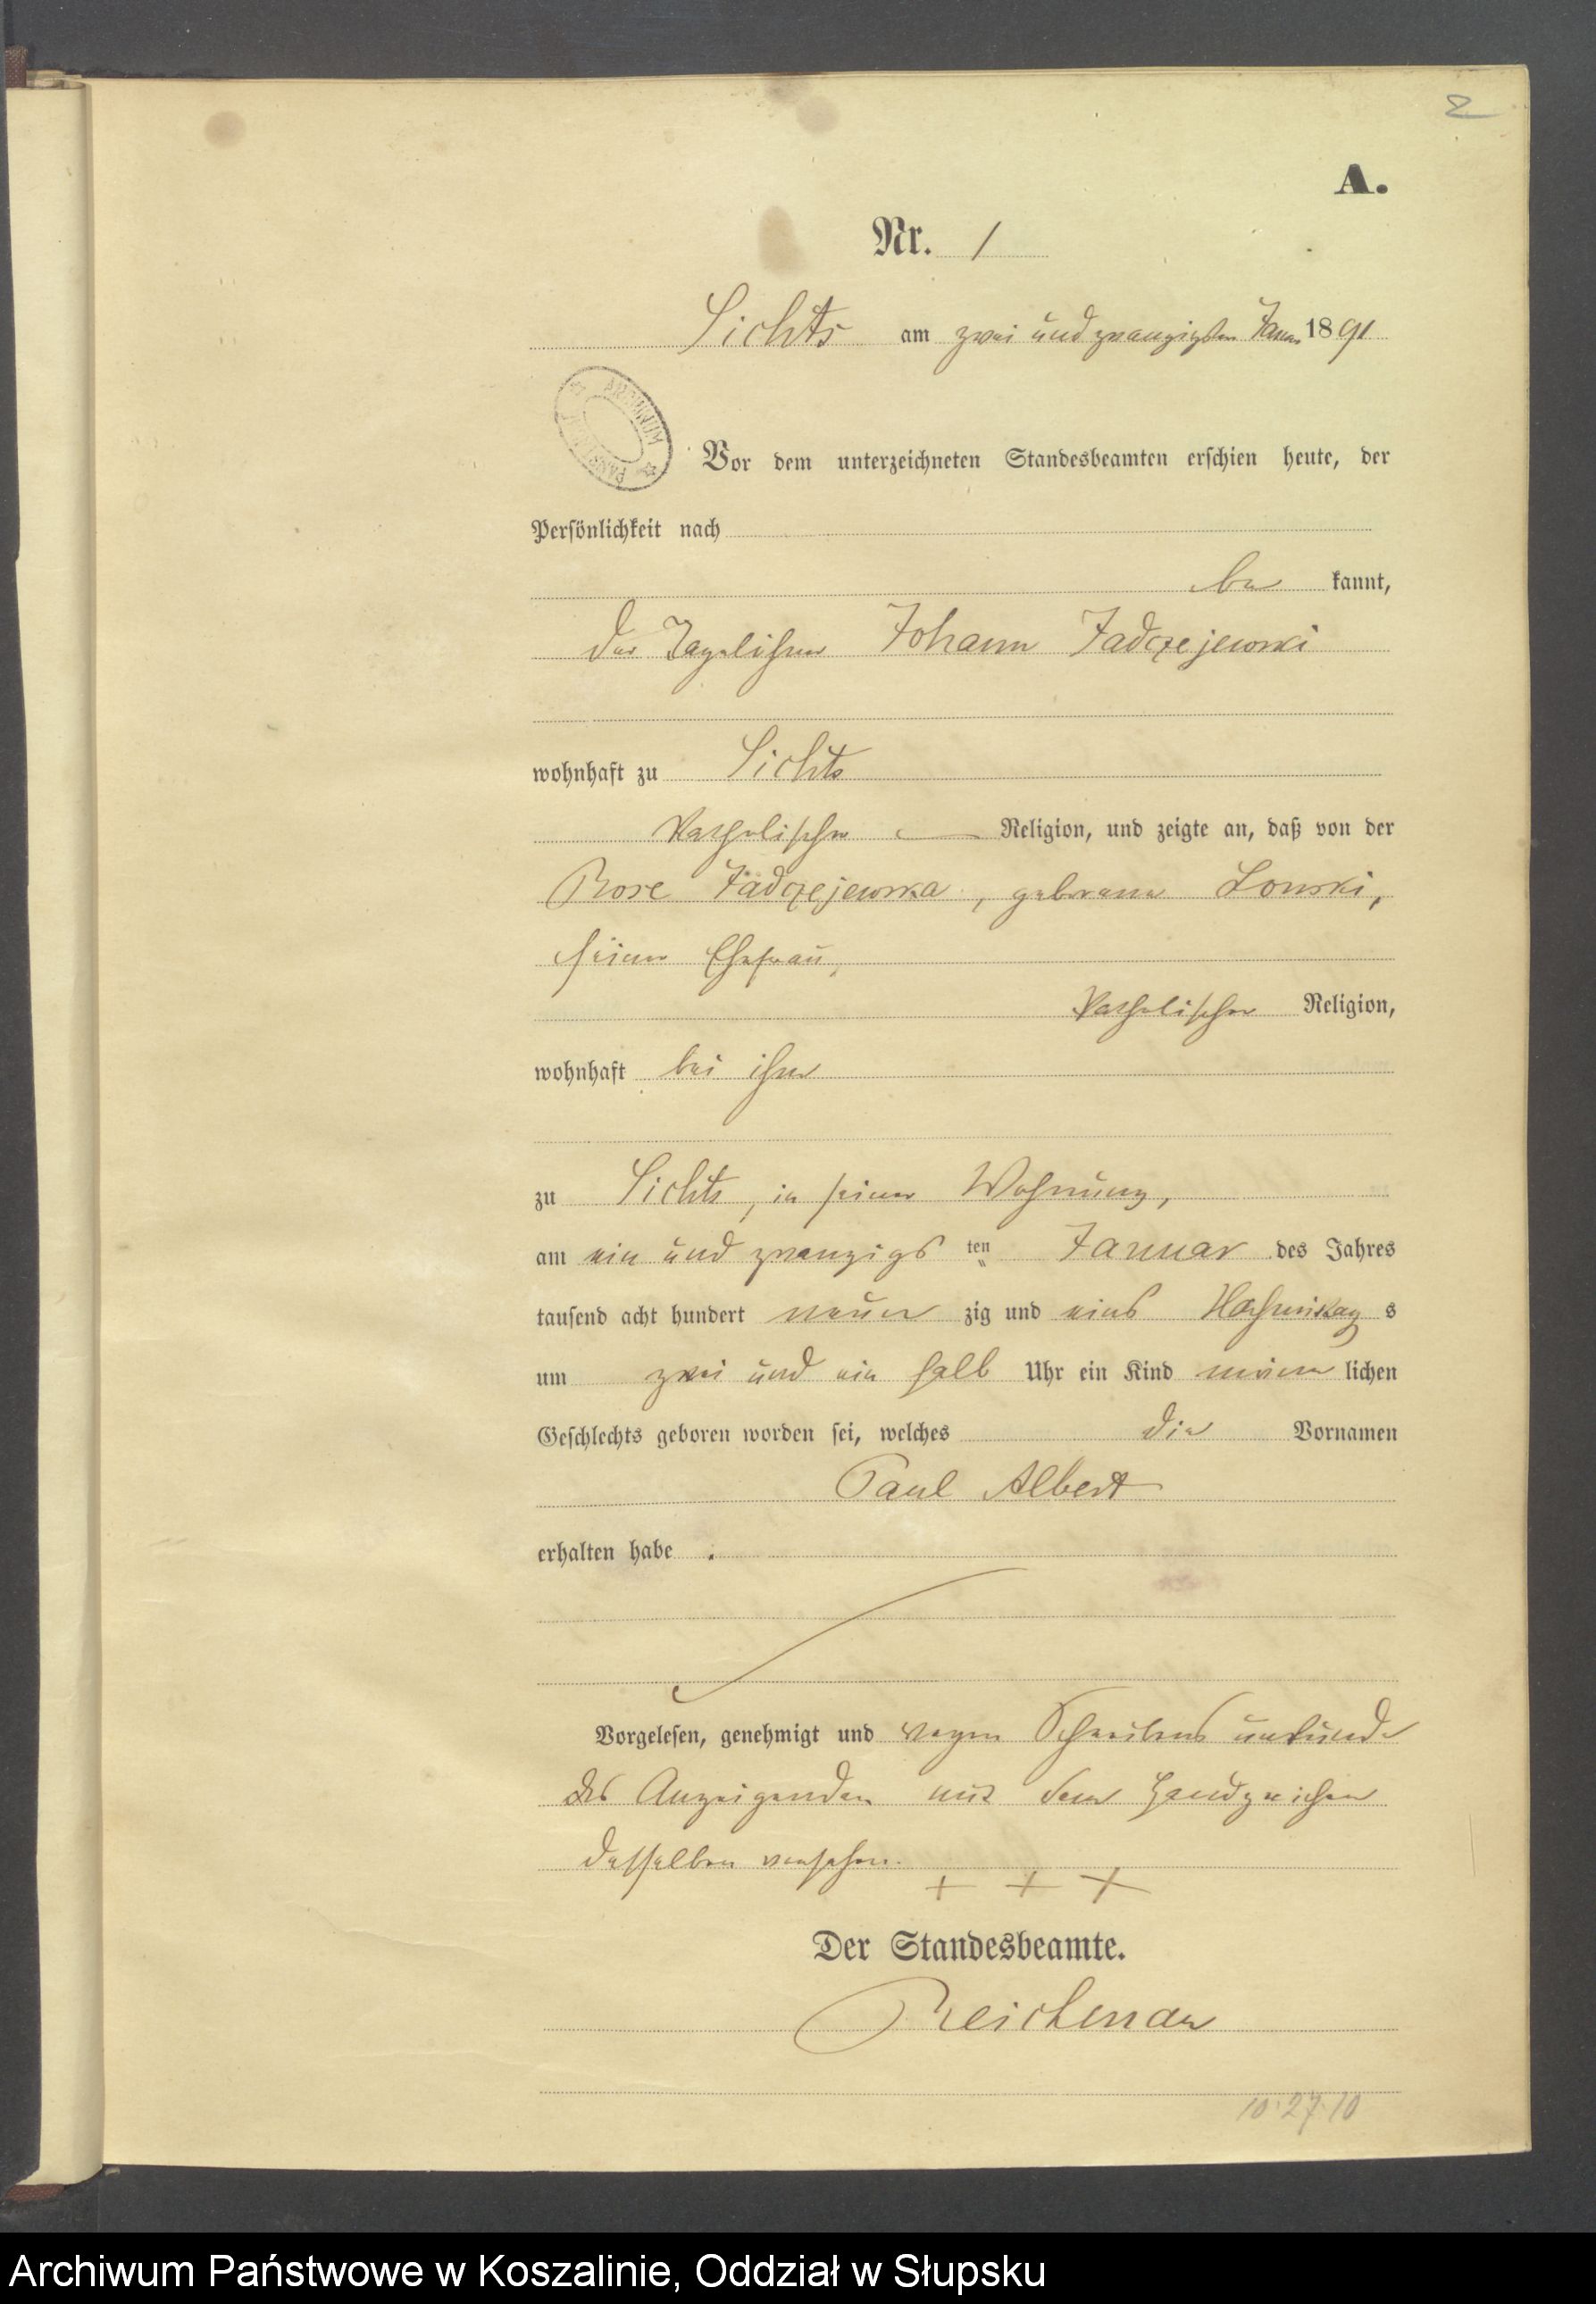 2
A.
Nr. 1
Lichts am zwei und zwanzigsten Januar 1891
ARCHIWUM
Vor dem unterzeichneten Standesbeamten erschien heute, der
Persönlichkeit nach
be kannt,
der Tagelöhner Johann Jadczejewski
wohnhaft zu Lichts
katholischer Religion, und zeigte an, daß von der
Rose Jadczejewska, geborene Lonski,
seiner Ehefrau,
katholischer Religion,
wohnhaft bei ihm
zu Lichts, in seiner Wohnung,
am ein und zwanzigs ten Januar des Jahres
tausend acht hundert neun zig und eins Nachmittag s
um zwei und ein halb Uhr ein Kind männ lichen
Geschlechts geboren worden sei, welches die Vornamen
Paul Albert
erhalten habe .
Vorgelesen, genehmigt und wegen Schreibensunkunde
des Anzeigenden mit dem Handzeichen
desselben versehen.
+ + +
Der Standesbeamte.
10.27.10
Archiwum Państwowe w Koszalinie, Oddział w Słupsku